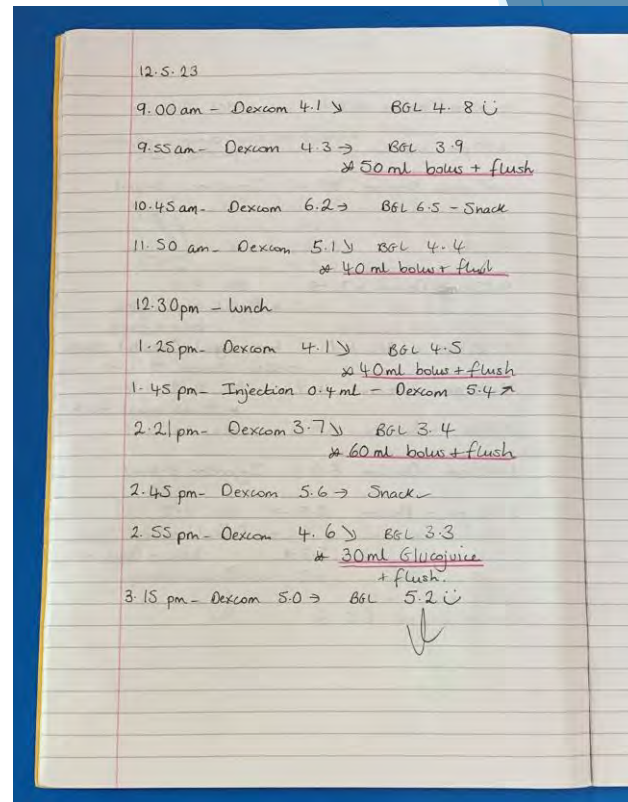 12.5.23
9.00am - Dexcom 4.1 ↘ BGL 4.8 ☺
9.55am - Dexcom 4.3 → BGL 3.9
* 50ml bolus + flush
10.45am - Dexcom 6.2 → BGL 6.5 - Snack
11.50 am - Dexcom 5.1 ↘ BGL 4.4
* 40ml bolus + flush
12.30pm - lunch
1.25pm - Dexcom 4.1 ↘ BGL 4.5
* 40ml bolus + flush
1.45 pm - Injection 0.4ml - Dexcom 5.4 ↗
2.21pm - Dexcom 3.7 ↘ BGL 3.4
* 60ml bolus + flush
2.45 pm - Dexcom 5.6 → Snack
2.55pm - Dexcom 4.6 ↘ BGL 3.3
* 30ml Glucojuice
+ flush.
3.15 pm - Dexcom 5.0 → BGL 5.2 ☺